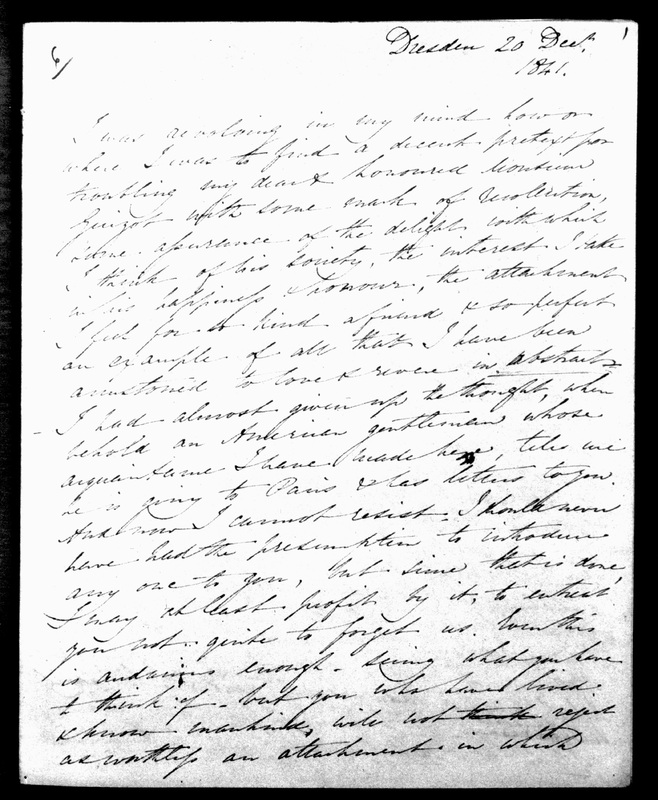 6/
1
Dresden 20 Decr.
1841.
I was revolving in my mind how or
where I was to find a decent pretext for
troubling my dear & honoured Monsieur
Guizot with some mark of recollection,
some assurance of the delight with which
I think of his society, the interest I take
in his happiness & honour, the attachment
I feel for so kind a friend & so perfect
an example of all that I have been
accustomed to love & revere in abstract.
I had almost given up the thought, when
behold an American gentleman whose
acquaintance I have made here, tells me
he is going to Paris & has letters to you.
And now I cannot resist. I should never
have had the presumption to introduce
any one to you, but since that is done,
I may at least profit by it, to entreat
you not quite to forget us. Even this
is audacious enough - seeing what you have
to think of - but you who have lived
& know mankind, will not think reject
as worthless an attachment in which